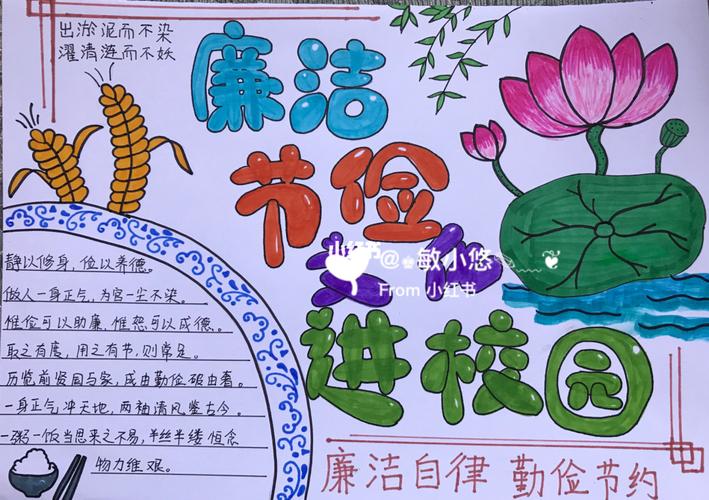 出淤泥而不染
濯清涟而不妖
廉洁
节俭
小红书@敏小悠
From 小红书
进校园
静以修身，俭以养德。
做人一身正气，为官一尘不染。
惟俭可以助廉，惟恕可以成德。
取之有度，用之有节，则常足。
历览前贤国与家，成由勤俭破由奢。
一身正气冲天地，两袖清风鉴古今。
一粥一饭当思来之不易，半丝半缕恒念
物力维艰。
廉洁自律 勤俭节约